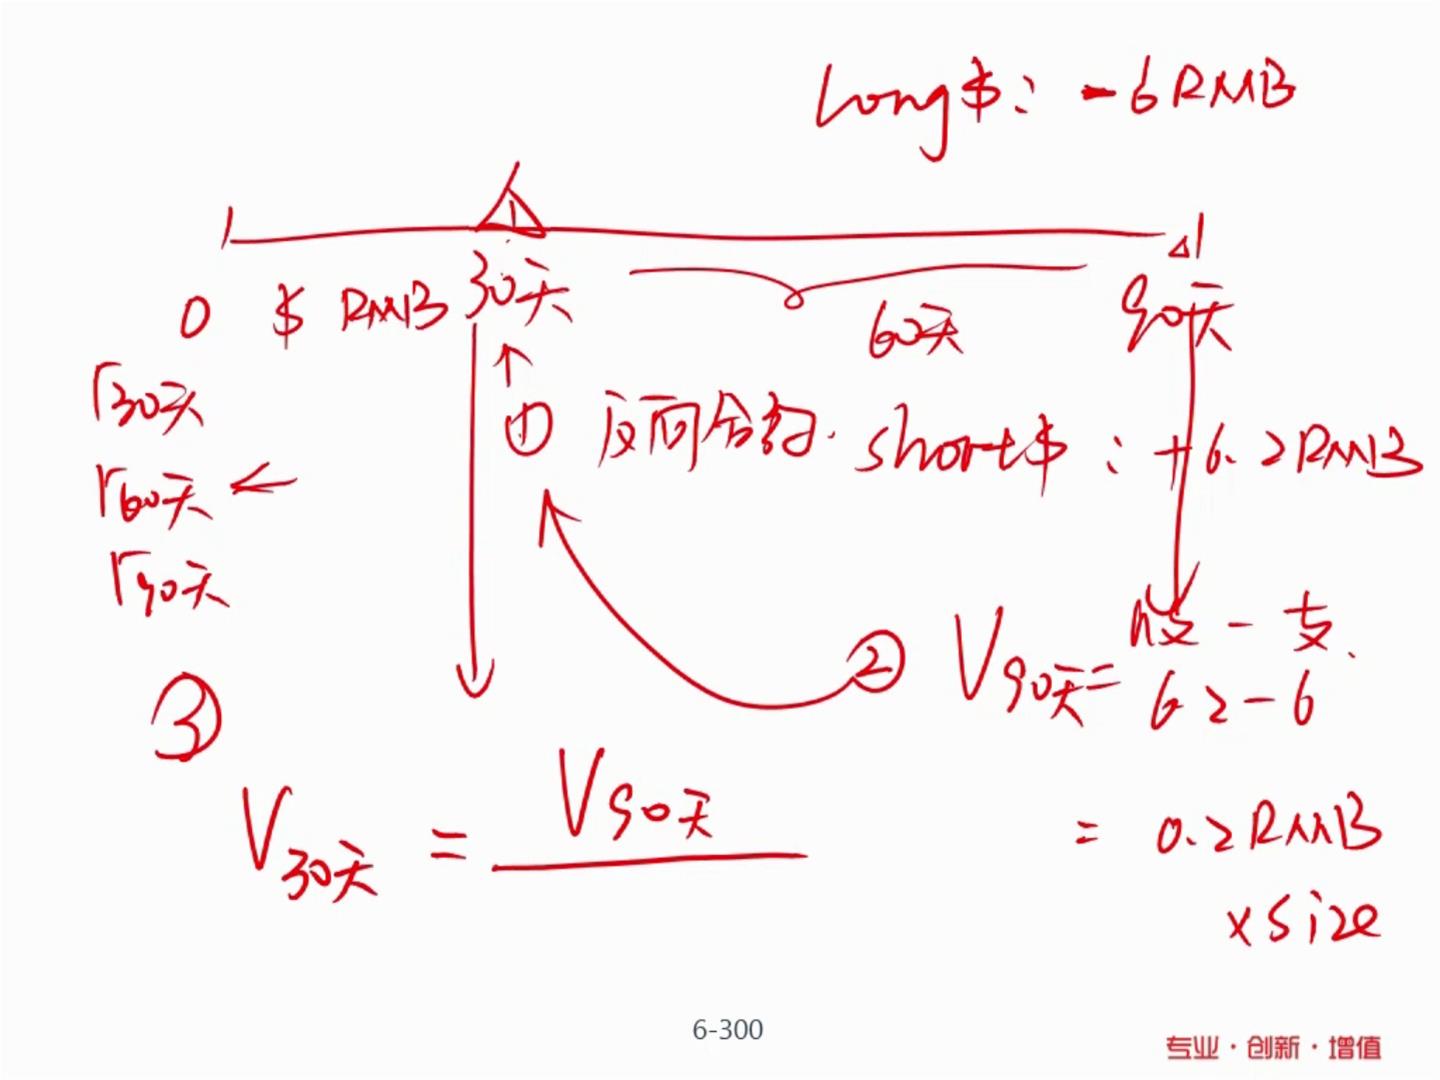 long $: -6RMB
1
0 $ RMB 30天 60天 90天
r30天
r60天
r90天
① 反向合约. short $: +6.2RMB
② V90天 = 收 - 支.
6.2-6
= 0.2RMB
x size
③
V30天 = V90天
6-300
专业·创新·增值